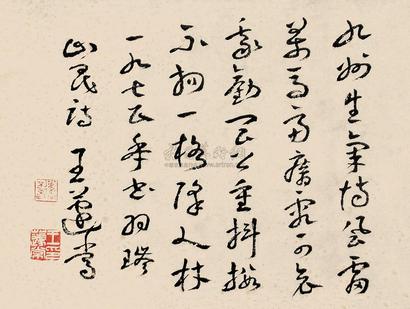 九州生氣恃風雷
萬馬齊瘖究可哀
我勸天公重抖擻
不拘一格降人材
一九七五年書羽琌
山民詩 王蘧常